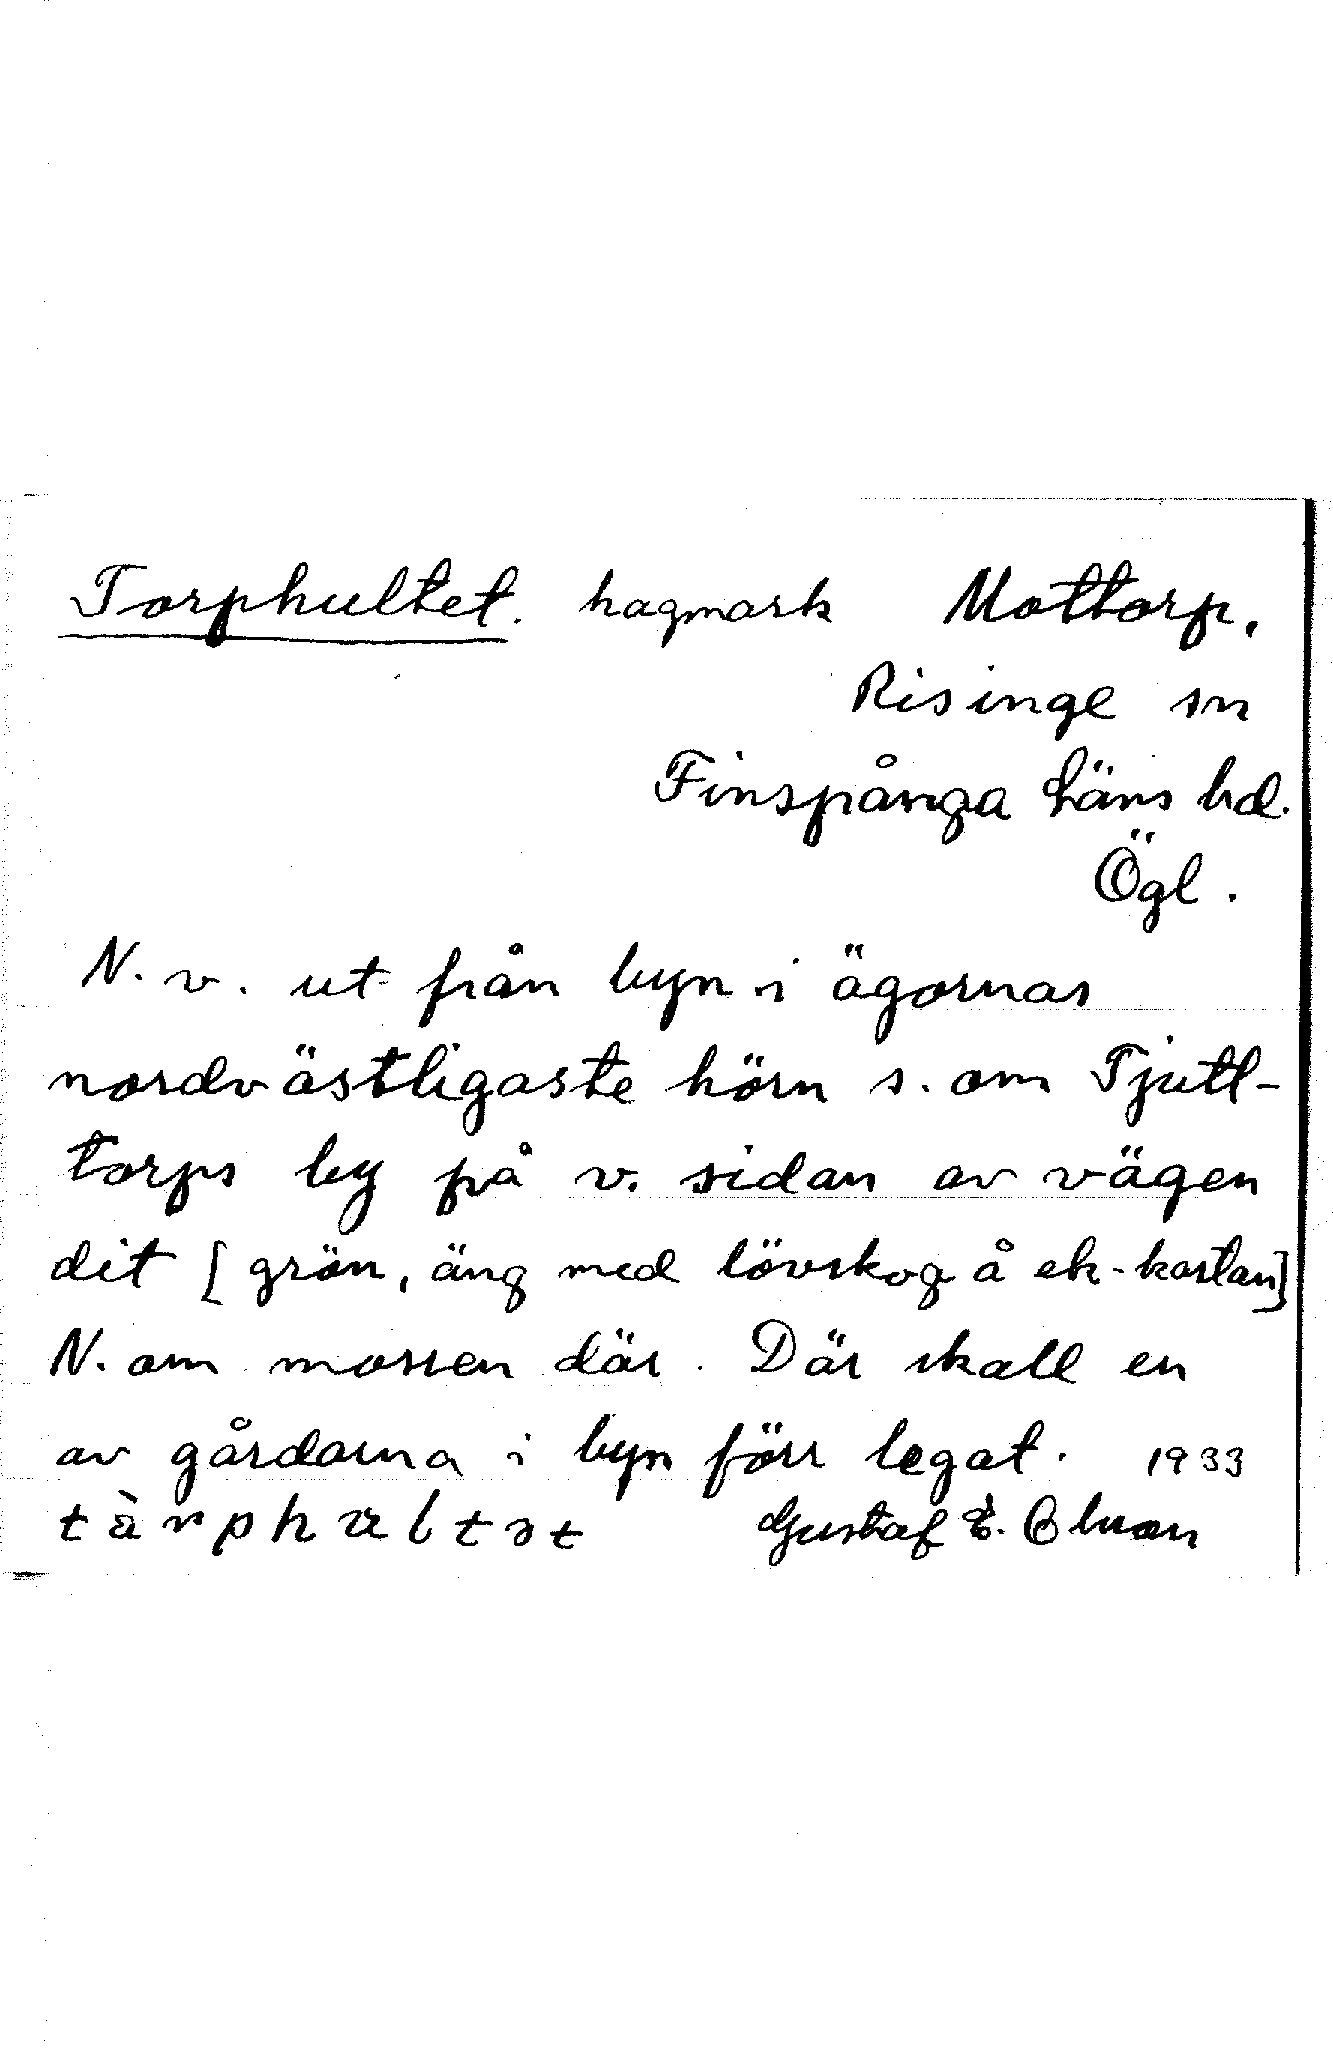 Torphultet. hagmark Mottorp,
Risinge sn
Finspånga läns hd.
Ögl.
N. v. ut från byn i ägornas
nordvästligaste hörn s. om Tjutt-
torps by på v. sidan av vägen
dit [grön, äng med lövskog å ek-kartan]
N. om mossen där. Där skall en
av gårdarna i byn förr legat. 1933
Gustaf E.